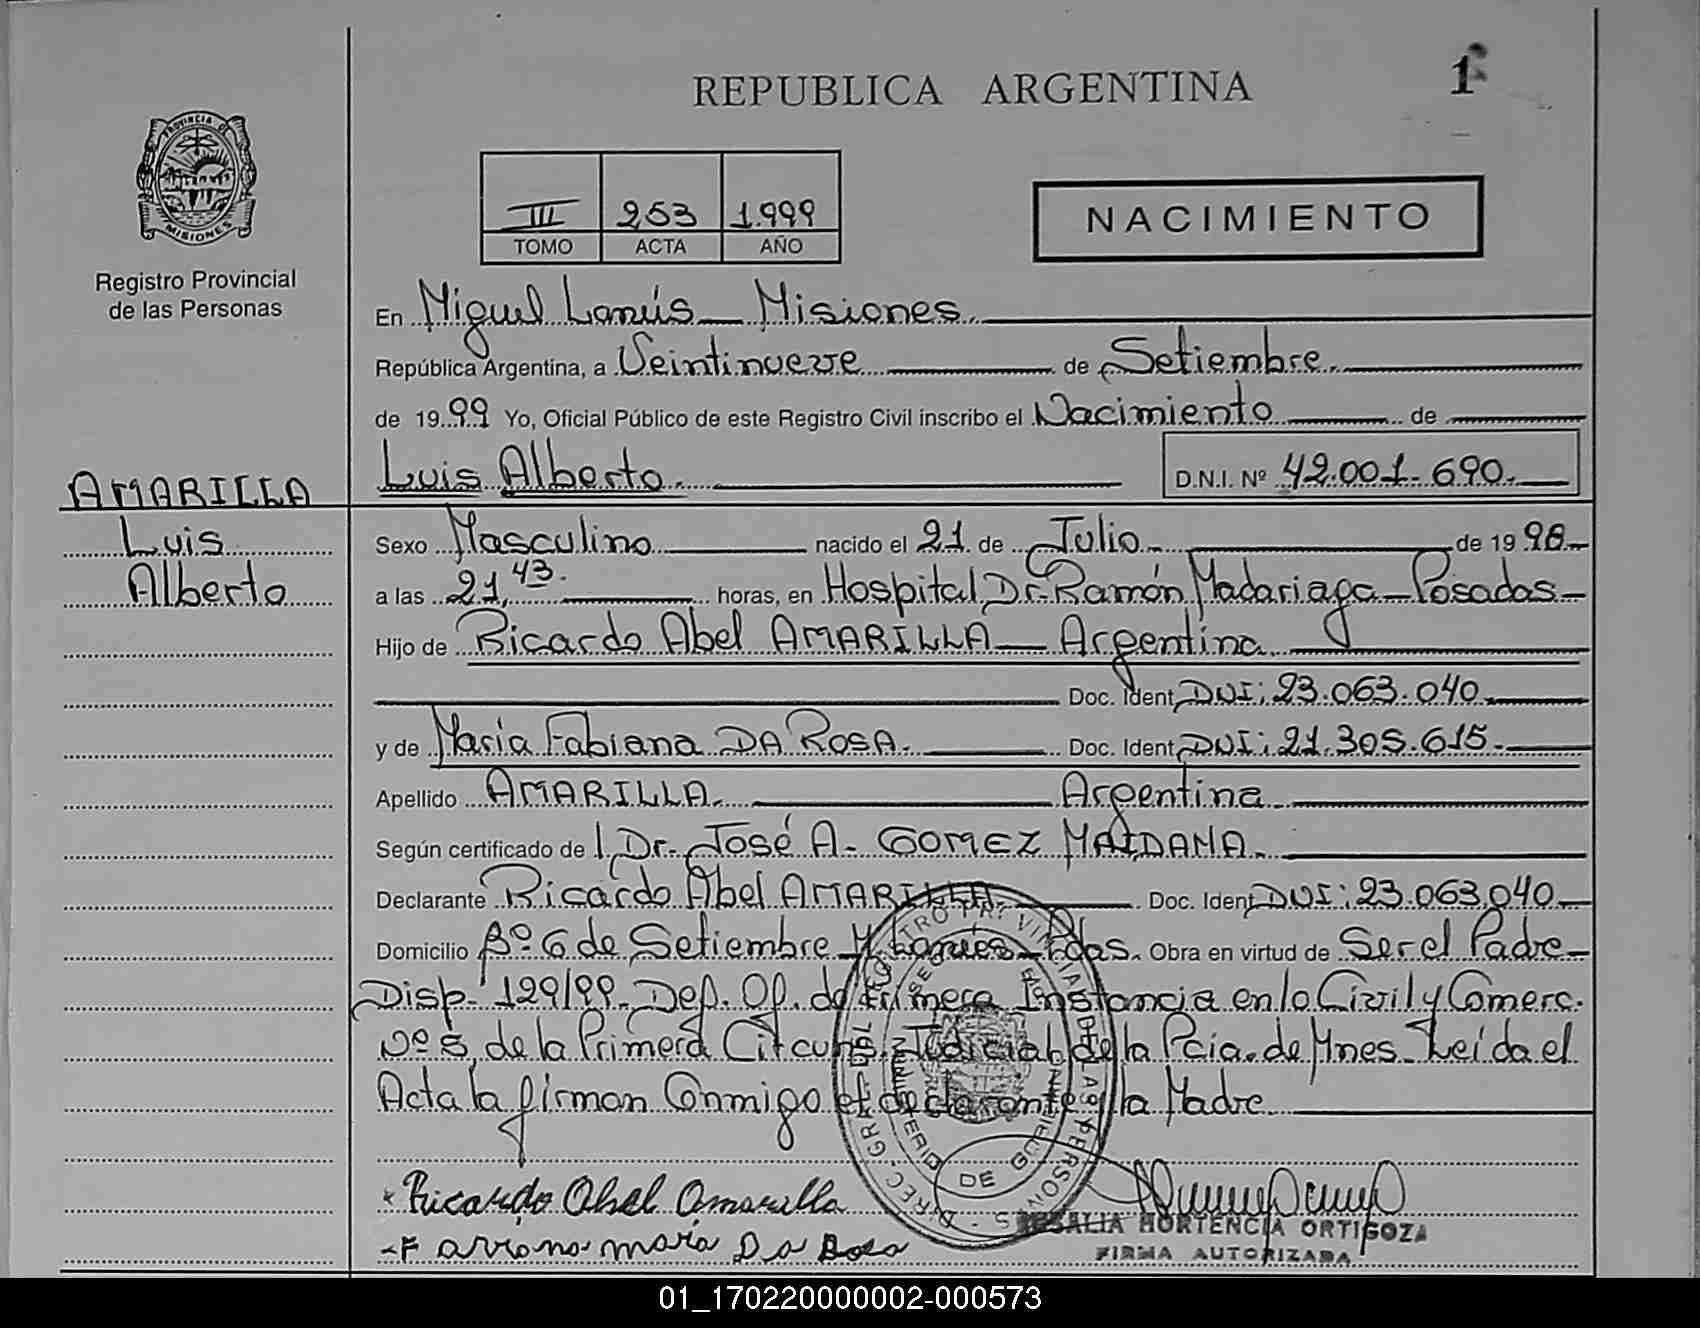 REPUBLICA ARGENTINA
1
PROVINCIA DE
MISIONES
Registro Provincial
de las Personas
III 253 1.999
TOMO ACTA AÑO
NACIMIENTO
En Miguel Lanús - Misiones.
República Argentina, a Veintinueve de Setiembre.
de 19 99 Yo, Oficial Público de este Registro Civil inscribo el Nacimiento de
Luis Alberto. D.N.I. Nº 42.001.690.
AMARILLA
Luis
Alberto
Sexo Masculino nacido el 21 de Julio de 19 98
a las 21,43. horas, en Hospital Dr. Ramón Madariaga - Posadas
Hijo de Ricardo Abel AMARILLA - Argentina.
Doc. Ident. DNI: 23.063.040.
y de María Fabiana DA ROSA. Doc. Ident. DNI: 21.305.615.
Apellido AMARILLA. Argentina.
Según certificado de Dr. José A. GOMEZ MAIDANA.
Declarante Ricardo Abel AMARILLA Doc. Ident. DNI: 23.063.040
Domicilio Bº 6 de Setiembre M. Lanús - Pdas. Obra en virtud de Ser el Padre -
Disp. 129/99. Def. Of. de Primera Instancia en lo Civil y Comerc.
Nº 5, de la Primera Circuns. Judicial de la Pcia. de Mnes. Leída el
Acta la firman Conmigo el declarante y la Madre
Ricardo Abel Amarilla
maria Da Rosa
ROSALIA HORTENCIA ORTIGOZA
FIRMA AUTORIZADA
01_170220000002-000573